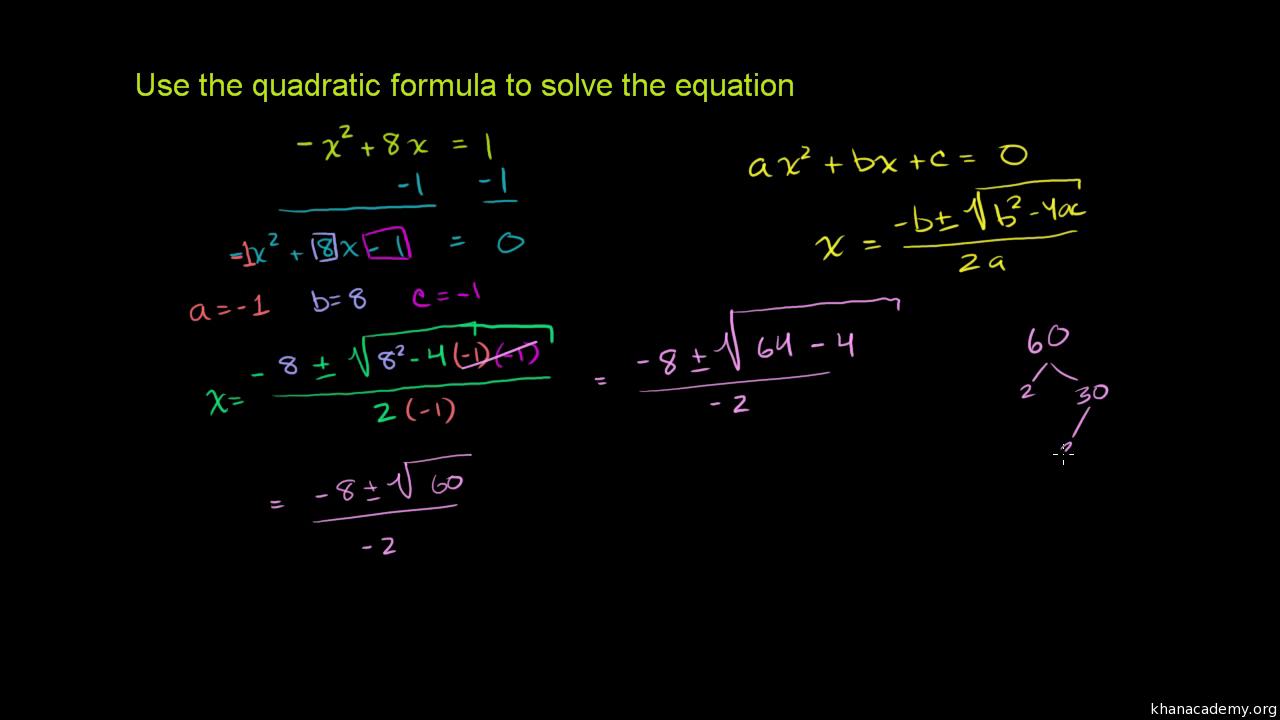 Use the quadratic formula to solve the equation
-x² + 8x = 1
-1 -1
-1x² + 8x - 1 = 0
a = -1 b = 8 c = -1
x = -8 ± √(8² - 4(-1)(-1)) / 2(-1)
= -8 ± √(64 - 4) / -2
= -8 ± √60 / -2
ax² + bx + c = 0
x = -b ± √(b² - 4ac) / 2a
60
2 30
khanacademy.org